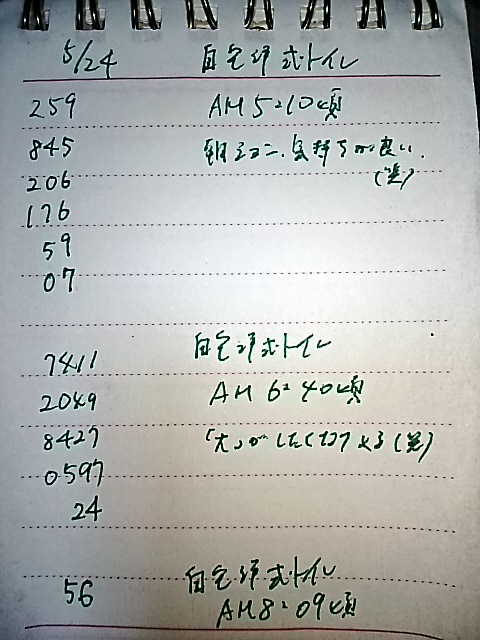 5/24 自宅洋式トイレ
259 AM 5:10頃
845 朝シヨン、気持ちが良い.
206 (笑)
176
59
07
自宅洋式トイレ
7411
2049 AM 6:40頃
8427 「大」がしたくなつよる(笑)
0597
24
自宅洋式トイレ
56 AM 8:09頃